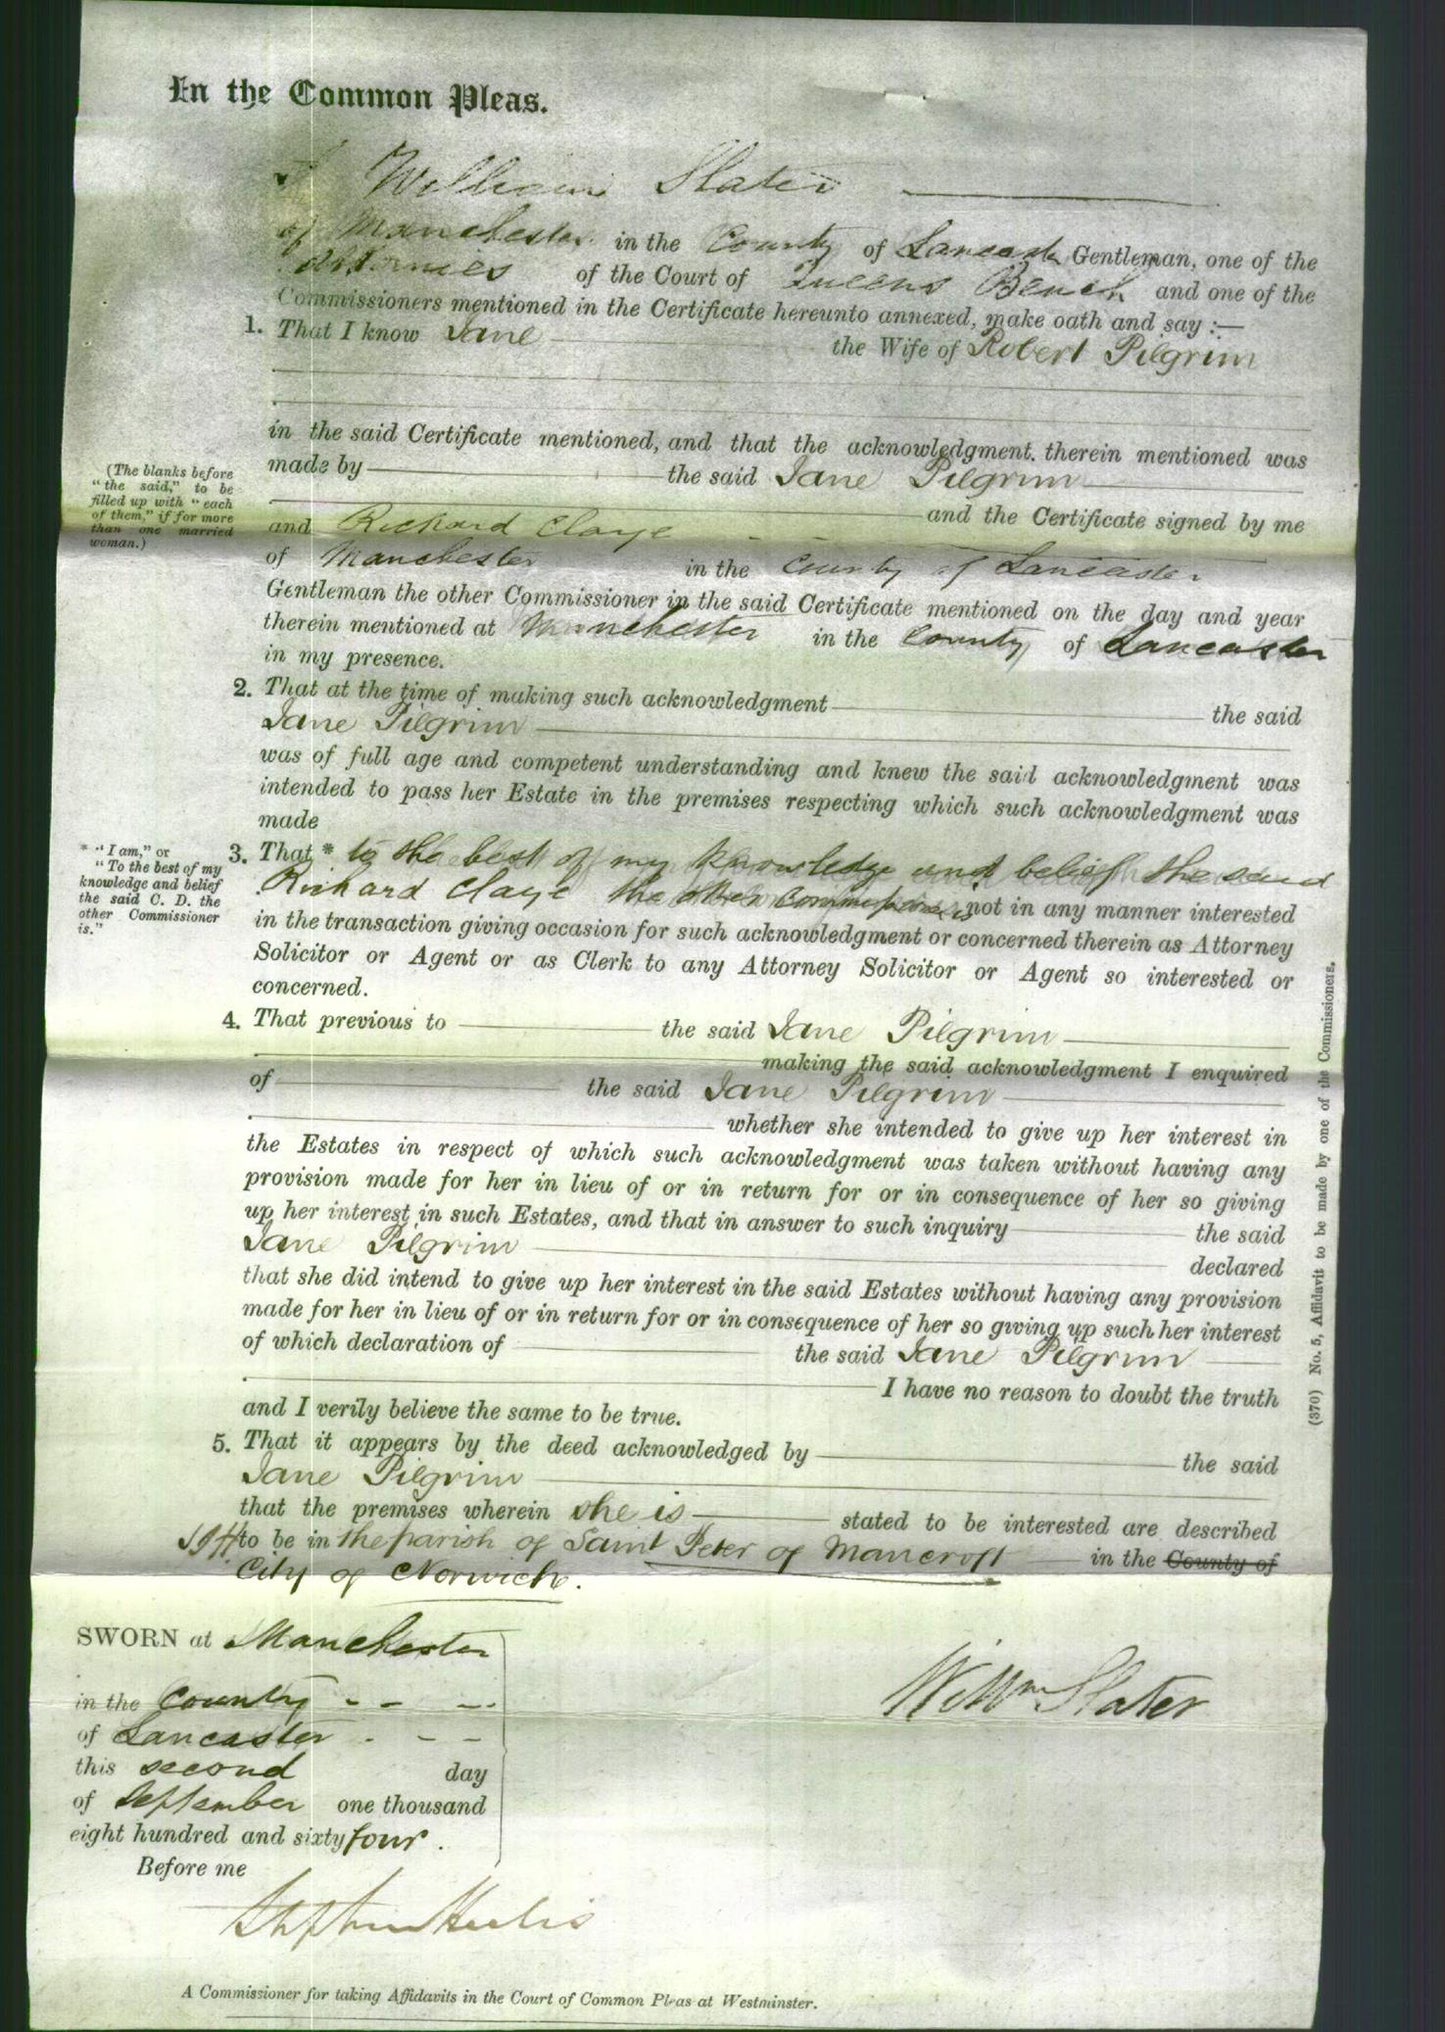 In the Common Pleas.
I William Slater
of Manchester in the County of Lancaster Gentleman, one of the
Attornies of the Court of Queens Bench and one of the
Commissioners mentioned in the Certificate hereunto annexed, make oath and say :—
1. That I know Jane the Wife of Robert Pilgrim
in the said Certificate mentioned, and that the acknowledgment therein mentioned was
made by the said Jane Pilgrim
and the Certificate signed by me
(The blanks before
"the said," to be
filled up with "each
of them," if for more
than one married
woman.)
and Richard Claye
of Manchester in the County of Lancaster
Gentleman the other Commissioner in the said Certificate mentioned on the day and year
therein mentioned at Manchester in the County of Lancaster
in my presence.
2. That at the time of making such acknowledgment the said
Jane Pilgrim
was of full age and competent understanding and knew the said acknowledgment was
intended to pass her Estate in the premises respecting which such acknowledgment was
made
* "I am," or
"To the best of my
knowledge and belief
the said C. D. the
other Commissioner
is."
3. That * to the best of my knowledge and belief the said
Richard Claye the other Commissioner is not in any manner interested
in the transaction giving occasion for such acknowledgment or concerned therein as Attorney
Solicitor or Agent or as Clerk to any Attorney Solicitor or Agent so interested or
concerned.
4. That previous to the said Jane Pilgrim
making the said acknowledgment I enquired
of the said Jane Pilgrim
whether she intended to give up her interest in
the Estates in respect of which such acknowledgment was taken without having any
provision made for her in lieu of or in return for or in consequence of her so giving
up her interest in such Estates, and that in answer to such inquiry the said
Jane Pilgrim declared
that she did intend to give up her interest in the said Estates without having any provision
made for her in lieu of or in return for or in consequence of her so giving up such her interest
of which declaration of the said Jane Pilgrim
I have no reason to doubt the truth
and I verily believe the same to be true.
5. That it appears by the deed acknowledged by the said
Jane Pilgrim
that the premises wherein she is stated to be interested are described
to be in the parish of Saint Peter of Mancroft in the County of
City of Norwich.
SWORN at Manchester
in the County
of Lancaster
this second day
of September one thousand
eight hundred and sixty four.
Before me
Willm Slater
A Commissioner for taking Affidavits in the Court of Common Pleas at Westminster.
(370) No. 5, Affidavit to be made by one of the Commissioners.